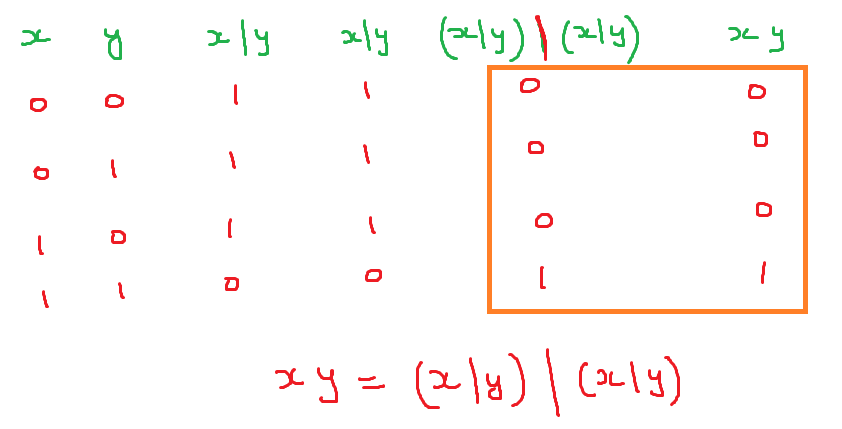 x y x|y x|y (x|y)|(x|y) xy
0 0 1 1 0 0
0 1 1 1 0 0
1 0 1 1 0 0
1 1 0 0 1 1
xy = (x|y)|(x|y)